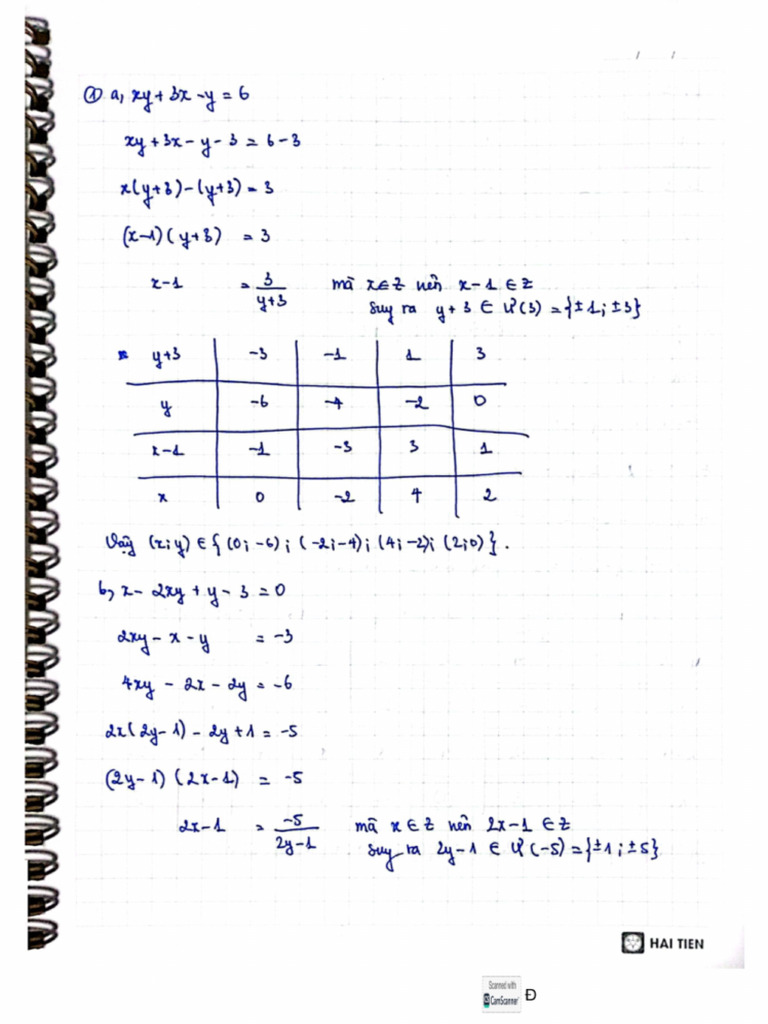 ① a, xy + 3x - y = 6
xy + 3x - y - 3 = 6 - 3
x(y+3) - (y+3) = 3
(x-1)(y+3) = 3
x-1 = 3/(y+3) mà x ∈ Z nên x-1 ∈ Z
Suy ra y+3 ∈ Ư(3) = {±1; ±3}
y+3 | -3 | -1 | 1 | 3
y | -6 | -4 | -2 | 0
x-1 | -1 | -3 | 3 | 1
x | 0 | -2 | 4 | 2
Vậy (x;y) ∈ { (0;-6); (-2;-4); (4;-2); (2;0) }.
b, x - 2xy + y - 3 = 0
2xy - x - y = -3
4xy - 2x - 2y = -6
2x(2y-1) - 2y + 1 = -5
(2y-1)(2x-1) = -5
2x-1 = -5/(2y-1) mà x ∈ Z nên 2x-1 ∈ Z
Suy ra 2y-1 ∈ Ư(-5) = {±1; ±5}
HAI TIEN
Scanned with
CamScanner
Đ